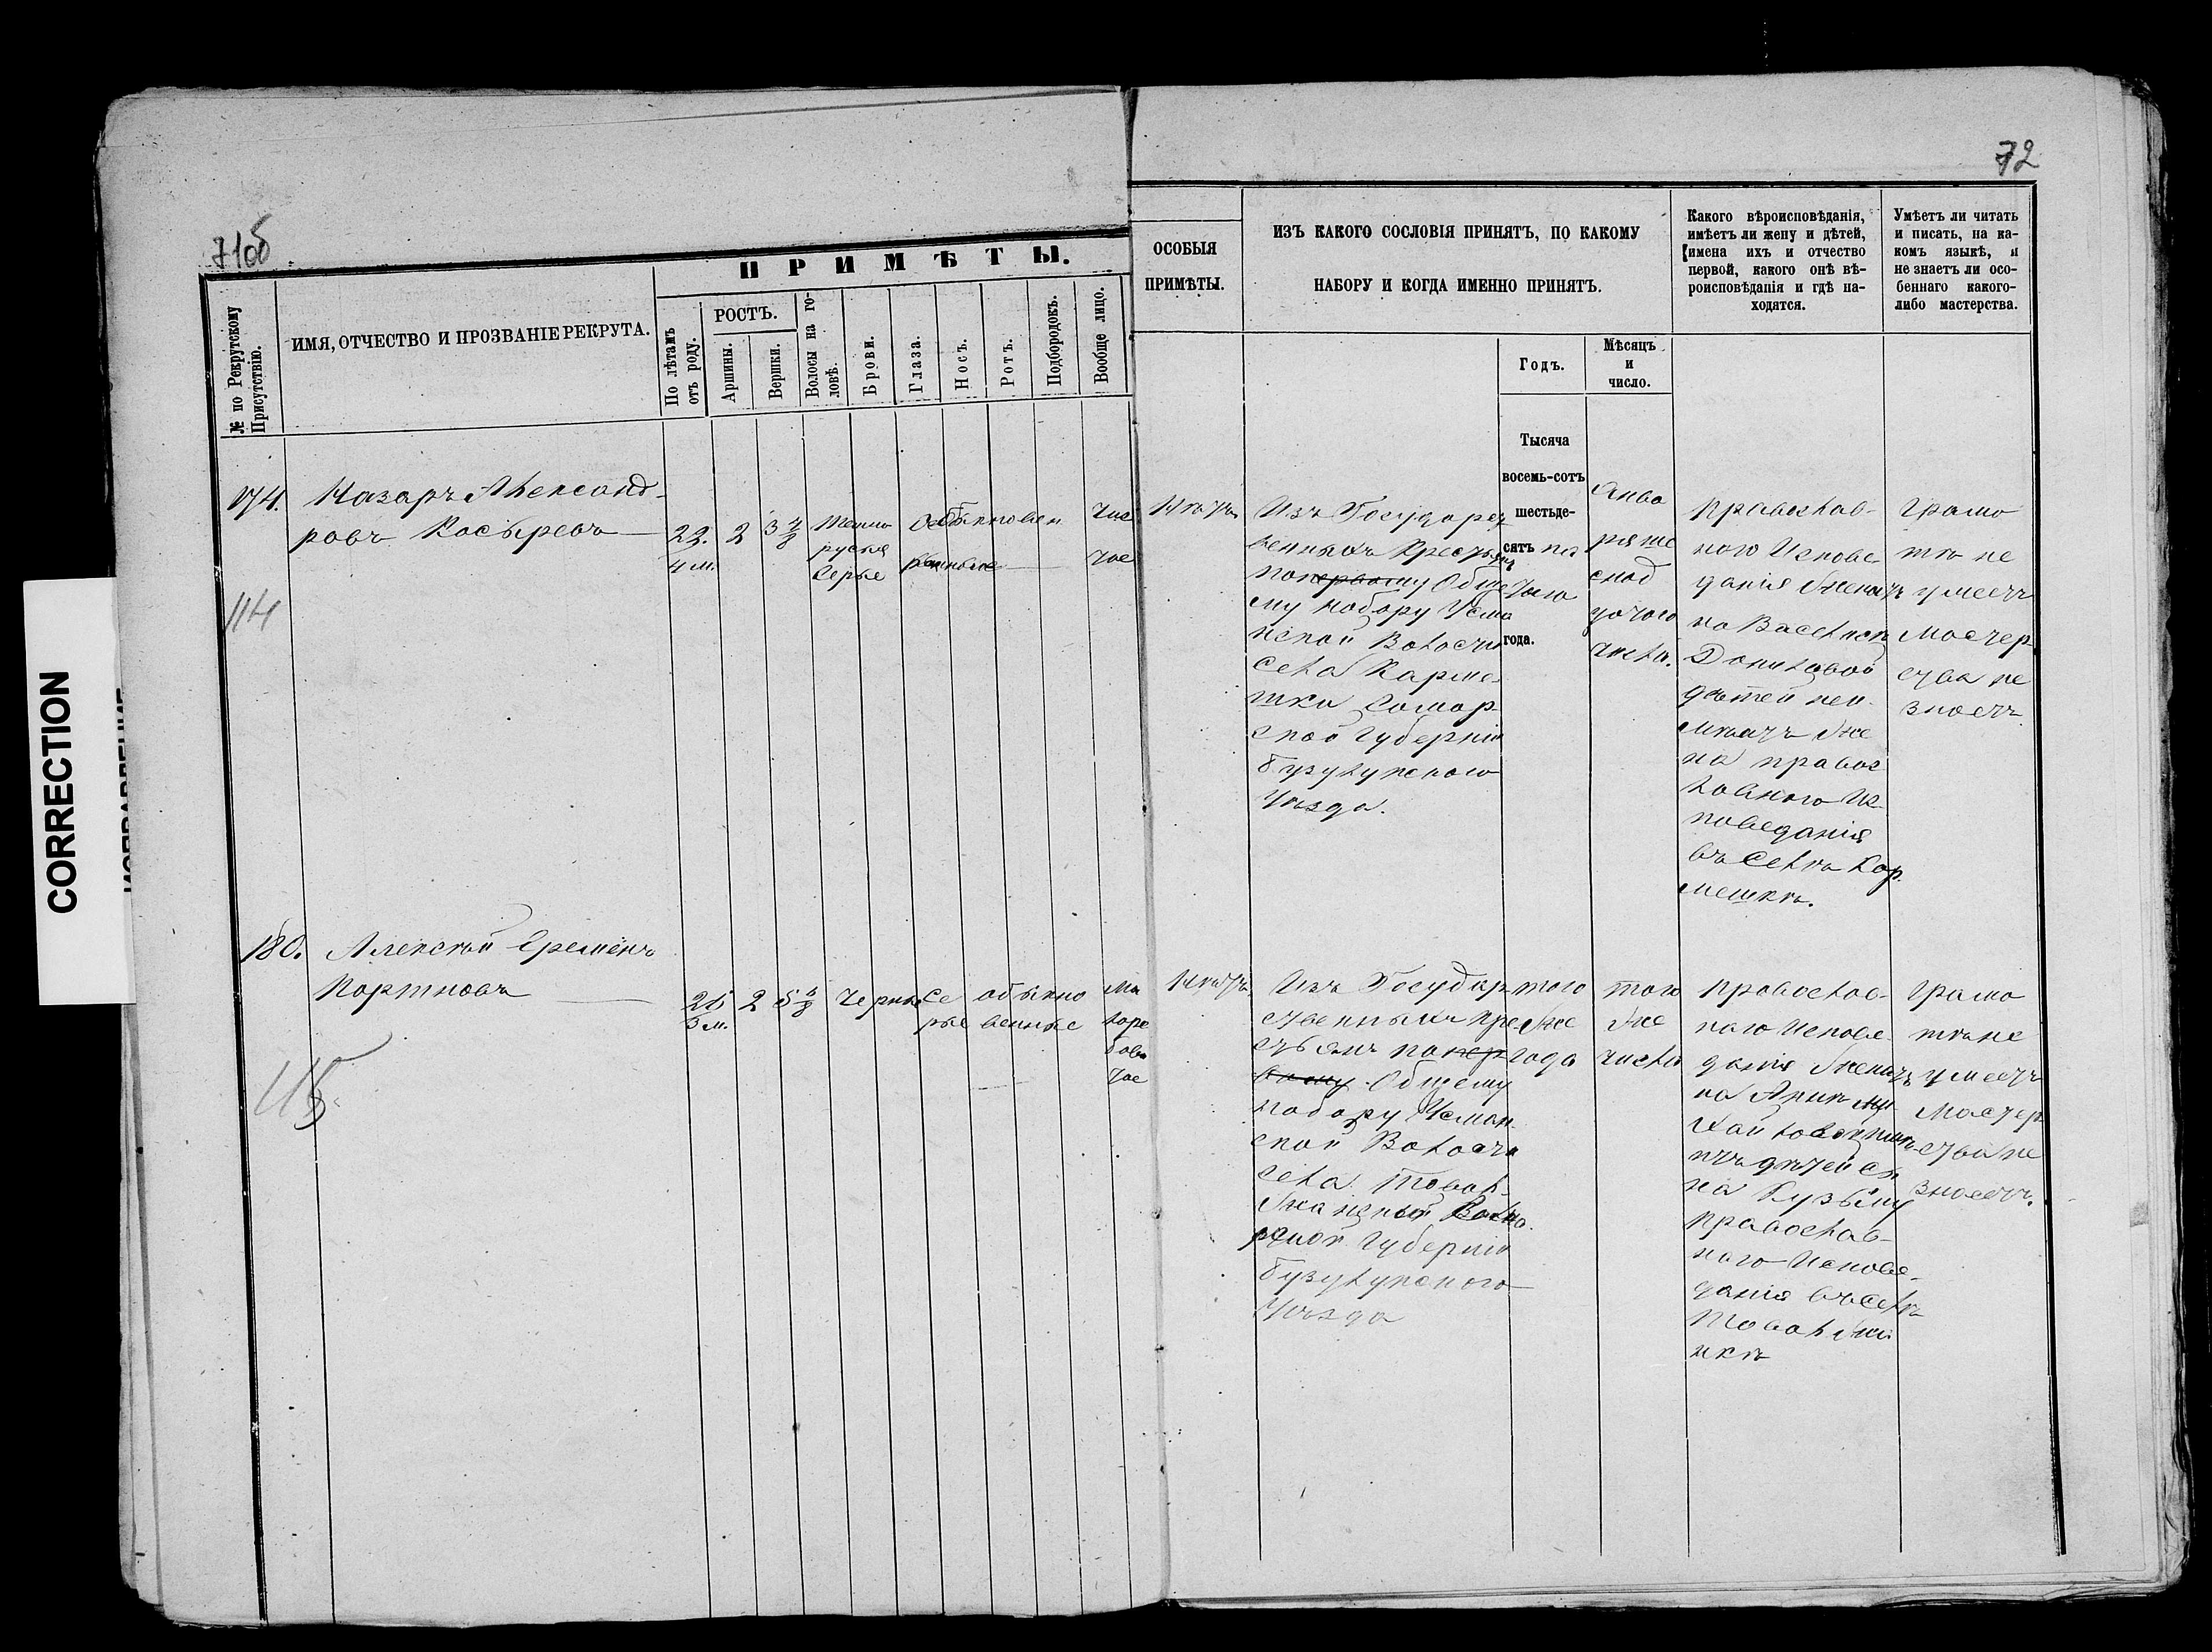 72
71об
CORRECTION
№ по Рекрутскому
Присутствію.
ИМЯ, ОТЧЕСТВО И ПРОЗВАНІЕ РЕКРУТА.
ПРИМѢТЫ.
По лѣтамъ
отъ роду.
РОСТЪ.
Аршины.
Вершки.
Волосы на го-
ловѣ.
Брови.
Глаза.
Носъ.
Ротъ.
Подбородокъ.
Вообще лицо.
ОСОБЫЯ
ПРИМѢТЫ.
ИЗЪ КАКОГО СОСЛОВІЯ ПРИНЯТЪ, ПО КАКОМУ
НАБОРУ И КОГДА ИМЕННО ПРИНЯТЪ.
Годъ.
Мѣсяцъ
и
число.
Какого вѣроисповѣданія,
имѣетъ ли жену и дѣтей,
имена ихъ и отчество
первой, какого онѣ вѣ-
роисповѣданія и гдѣ на-
ходятся.
Умѣетъ ли читать
и писать, на ка-
комъ языкѣ, и
не знаетъ ли осо-
беннаго какого-
либо мастерства.
174.
Назаръ Александ-
ровъ Косыревъ
22.
4 м.
2
3 4/8
Темно
русыя
Серые
Обыкновен
ные
Чис
тое
Нѣтъ
Изъ Государст
венныхъ Крестьянъ
по первому Обще
му набору Усма
нской Волости
Села Карме-
шки Самар-
ской Губерніи
Бузулукского
Уѣзда.
Тысяча
восемь-сотъ
шестьде-
сятъ пя
таго
года.
Янва
ря
числа.
Православ-
ного Испове
данія Женатъ
на Васелисе
Даниловой
детей неи-
меатъ Же
на правос
лавного Ис
поведанія
въ Селѣ Кар
мешкѣ.
Грамо
тѣ не
умеетъ
Мастер
ства не
знаетъ
114
180.
Алексѣй Еремѣнъ
Портновъ
25
3 м.
2
5 4/8
Черные
Се
рые
обыкно
венные
Ма
лоре
бова
тое
Нѣтъ
Изъ Государ
ственныхъ Кре
стьянъ по пер
вому Общему
набору Усман
ской Волости
Села
Губерніи
Бузулукского
Уѣзда
того
же
года
того
же
числа
Православ-
наго Испове-
данія Женатъ
на Аннѣ Ми
хайловой имѣ
етъ дѣтей сы
на Кузьму
Православ-
наго Испове-
данія въ Селѣ
Грамо
тѣ не
умеетъ
Мастер
ства не
знаетъ.
115